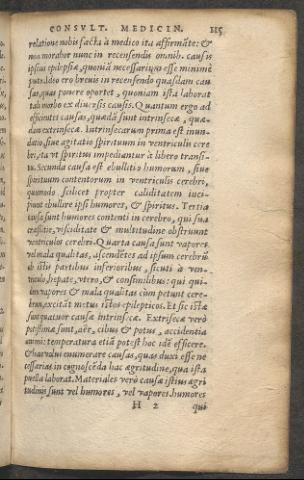 CONSVLT. MEDICIN. 115
relatione nobis facta à medico ita affirmāte: &
non morabor nunc in recensendis omnib. causis
ipsius epilepsiæ, quoniā necessarium esse minimè
puto. Ideo ero breuis in recensendo quasdam cau
sas, quas ponere oportet, quoniam ista laborat
tali morbo ex diuersis causis. Quantum ergo ad
efficientes causas, quædā sunt intrinsecæ, quæ-
dam extrinsecæ. Intrinsecarum prima est inun-
datio, siue agitatio spirituum in ventriculis cere
bri, ita vt spiritus impediantur à libero transi-
tu. Secunda causa est ebullitio humorum, siue
spirituum contentorum in ventriculis cerebro,
quomodo scilicet propter caliditatem inci-
piunt ebullire ipsi humores, & spiritus. Tertia
causa sunt humores contenti in cerebro, qui sua
crassitie, visciditate & multitudine obstruunt
ventriculos cerebri. Quarta causa sunt vapores
vel mala qualitas, ascendētes ad ipsum cerebrū
ab istis partibus inferioribus, sicuti à ven-
triculo, hepate, vtero, & consimilibus: qui qui-
dem vapores & mala qualitas cùm petunt cere-
brum, excitāt metus istos epilepticos. Et sic istæ
sunt quatuor causæ intrinsecæ. Extrinsecæ verò
potissimæ sunt, aër, cibus & potus, accidentia
animi: temperatura etiā potest hoc idē efficere.
& hæc volui enumerare causas, quas duxi esse ne
cessarias in cognoscēda hac ægritudine, qua ista
puella laborat. Materiales verò causæ istius ægri
tudinis sunt vel humores, vel vapores. humores
H 2 qui